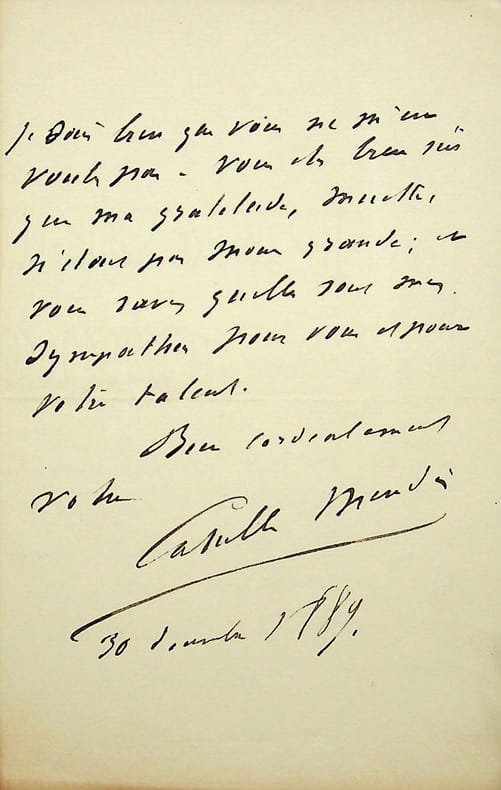 Je sais bien que vous ne m'en
voulez pas – vous êtes bien sûr
que ma gratitude, muette,
n'était pas moins grande ; et
vous savez quelles sont mes
sympathies pour vous et pour
votre talent.
Bien cordialement
votre
Catulle Mendès
30 décembre 1889.